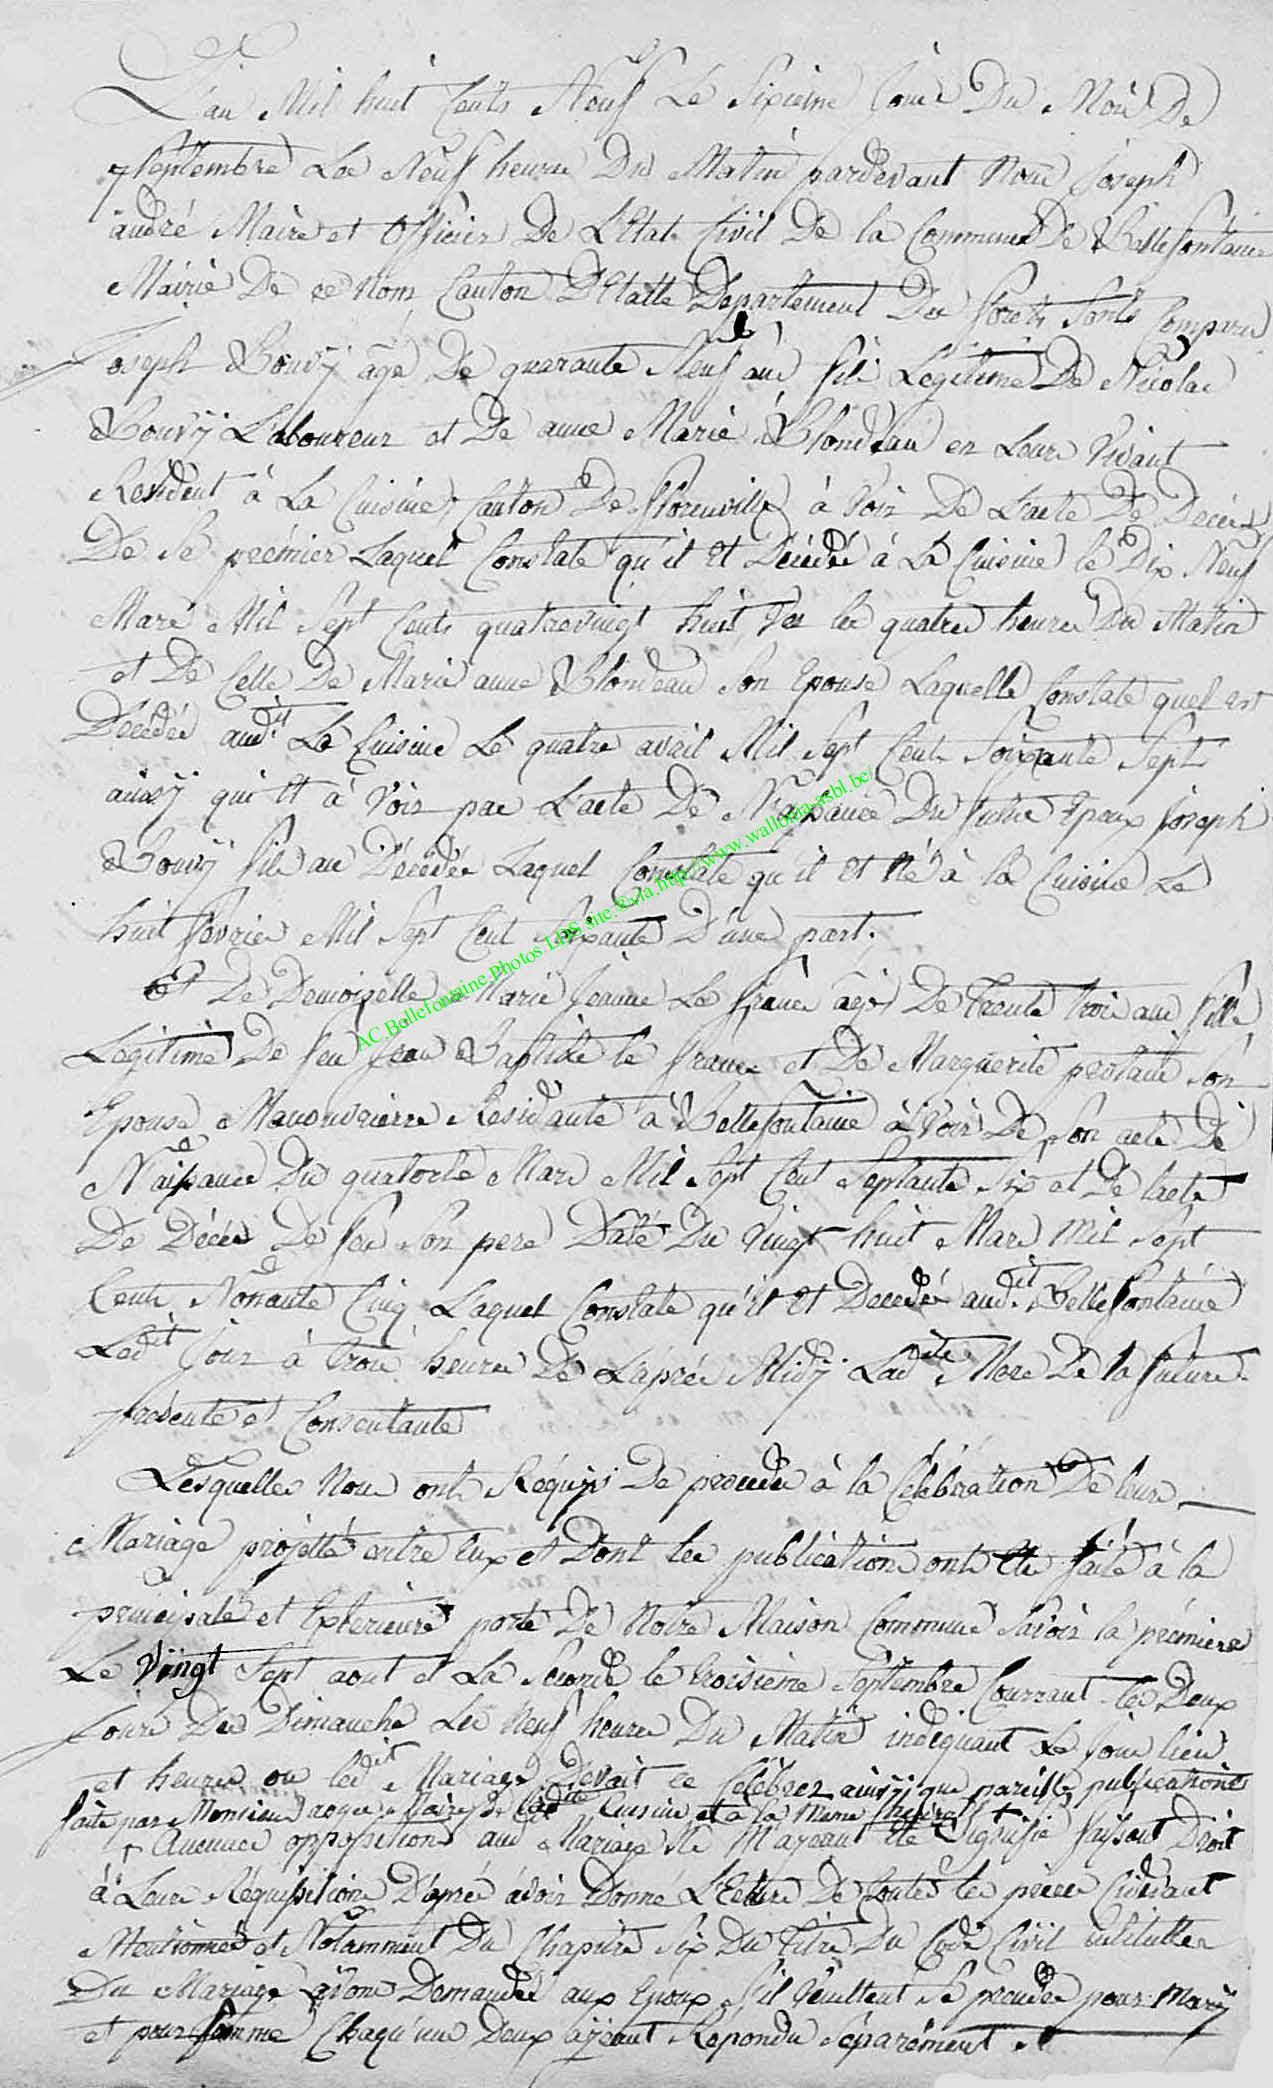 L'an Mil huit Cents Neuf Le Sixieme Jour Du Mois De
7Septembre Les Neuf heures Du Matin pardevant Nous Joseph
andré Maire et Officier De L'Etat Civil De la Commune De Bellefontaine
Mairie De ce Nom Canton D'Etalle Departement Des Forets Sonts Comparu
Joseph Bouvÿ agé De quarante Neuf ans fils Legitime De Nicolas
Bouvÿ Laboureur et De anne Marie Blondeau en Leurs Vivant
Residant à La Cuisine Canton De Florenville à Voir De L'acte De Décès
De Se prémier Laquel Constate qu'il Et Décédé à La Cuisine le Dix Neuf
Mars Mil Sept Cents quatrevingt huit Vers les quatres heures Du Matin
et De Celle De Marie anne Blondeau Son Epouse Laquelle Constate quel est
Décédée aud.it La Cuisine Le quatre avril Mil Sept Cent Soixante Sept
ainsÿ qui Et à Voir par L'acte De Naissance Du futur Epoux Joseph
Bouvÿ fils au Décédée Laquel Constate qu'il Et Né à la Cuisine Le
huit fevrier Mil Sept Cent Soixante D'une part.
Et De Demoiselle Marie Jeanne Le franc agé De Trente trois ans fille
Légitime De feu Jean Baptiste le franc et De Marguerite Son
Epouse Manouvrierre Residante à Bellefontaine à Voir De Son acte De
Naissance Du quatorse Mars Mil Sept Cent Septante Six et De l'acte
De Décès De feu Son pere Daté Du Vingt huit Mars Mil Sept
Cents Nonante Cinq Laquel Constate qu'il Et Decedé aud.it Bellefontaine
Ledit Jour à trois heures De L'aprés Midÿ Ladite Mere De la future
présente et Consentante
Lesquelles Nous onts Réquis De proceder à la Célébration De leurs
Mariage projetté entre Eux et Dont les publications onts Ete faite à la
principale et Exterieure porte De Notre Maison Commune Savoir la prémiere
Le Vingt Sept aout et La Seconde le troisieme Septembre Courrant les Deux
Jours Des Dimanche Les Neuf heures Du Matin indiquant Le Jour lieu
et heures ou ledit Mariage Devait ce Célébrer ainsÿ que pareille publications
faite par Monsieur Maire De ladite Cuisine et à la Meme
+ Aucunes opposition aud Mariage Ne M'ayeant Eté Signifié faisant Droit
à Leurs Réquisition D'aprés avoir Donné L'Ecture De toutes les pièces Cidevant
Mentionnés et Notamment Du Chapitre Six Du titre Du Code Civil intitullée
Du Mariage avons Demandée aux Epoux S'il Veuillent Se prendre pour Marÿ
et pour femme Chaqu'un Deux ayeant Repondu Séparément
AC.Bellefontaine.Photos LDS site ©vla.http://www.wallonia-asbl.be/